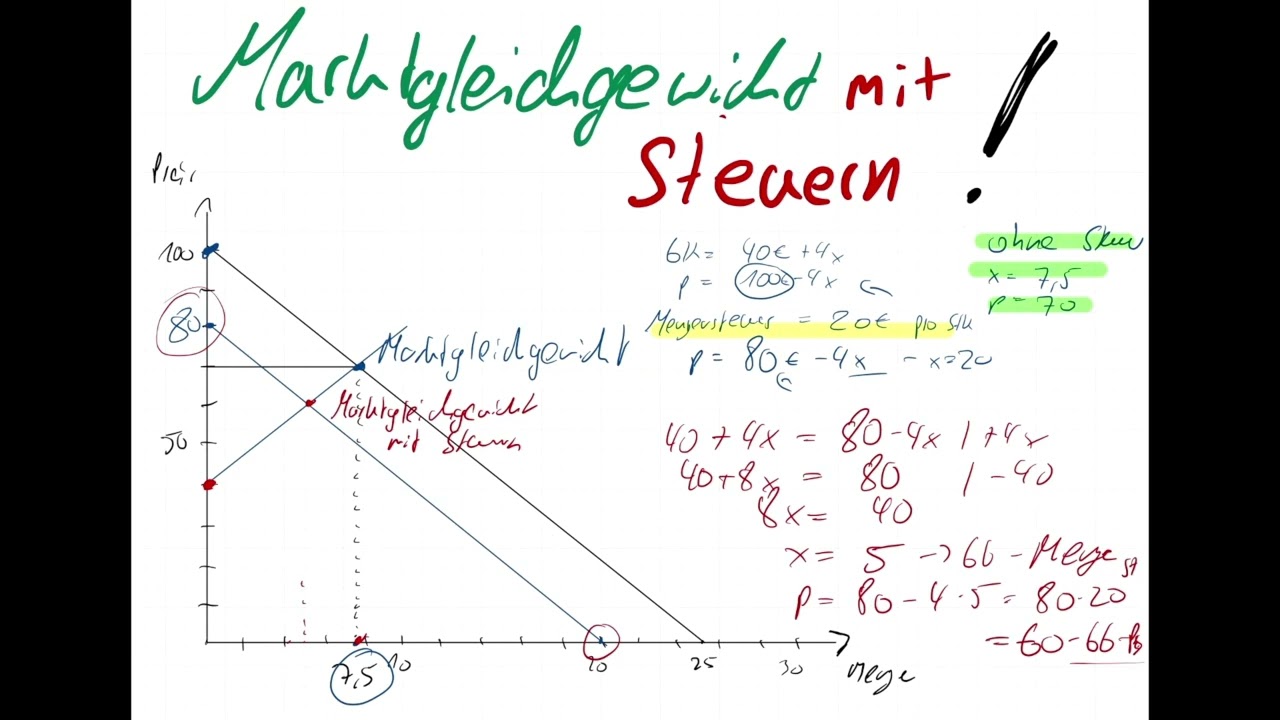 Marktgleichgewicht mit
Steuern !
Preis
100
80
50
Marktgleichgewicht
Marktgleichgewicht
mit Steuern
7,5
10
20
25
30
Menge
GK = 40€ + 4x
p = 100€ - 4x
Mengensteuer = 20€ pro Stk
p = 80€ - 4x - x=20
ohne Steuer
x = 7,5
p = 70
40 + 4x = 80 - 4x | + 4x
40 + 8x = 80 | - 40
8x = 40
x = 5 -> GG - Menge
p = 80 - 4 · 5 = 80 - 20
= 60 - GG -